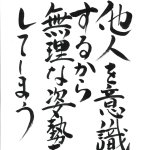 他人を意識
するから
無理な姿勢
してしまう